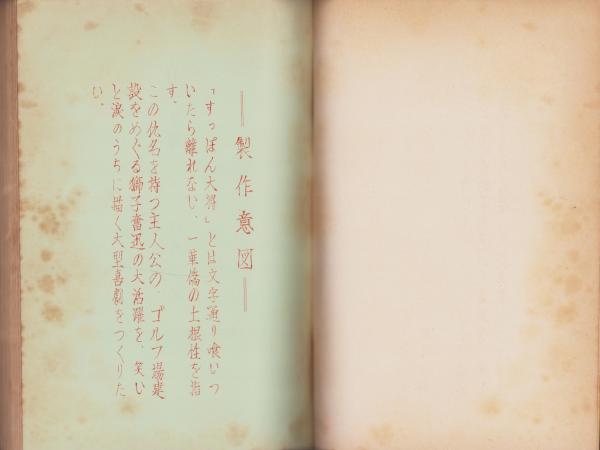 製作意図
「すっぽん大将」とは文字通り喰いつ
いたら離れない、一華僑の土根性を指
す。
この仇名を持つ主人公の、ゴルフ場建
設をめぐる獅子奮迅の大活躍を、笑い
と涙のうちに描く大型喜劇をつくりた
い。